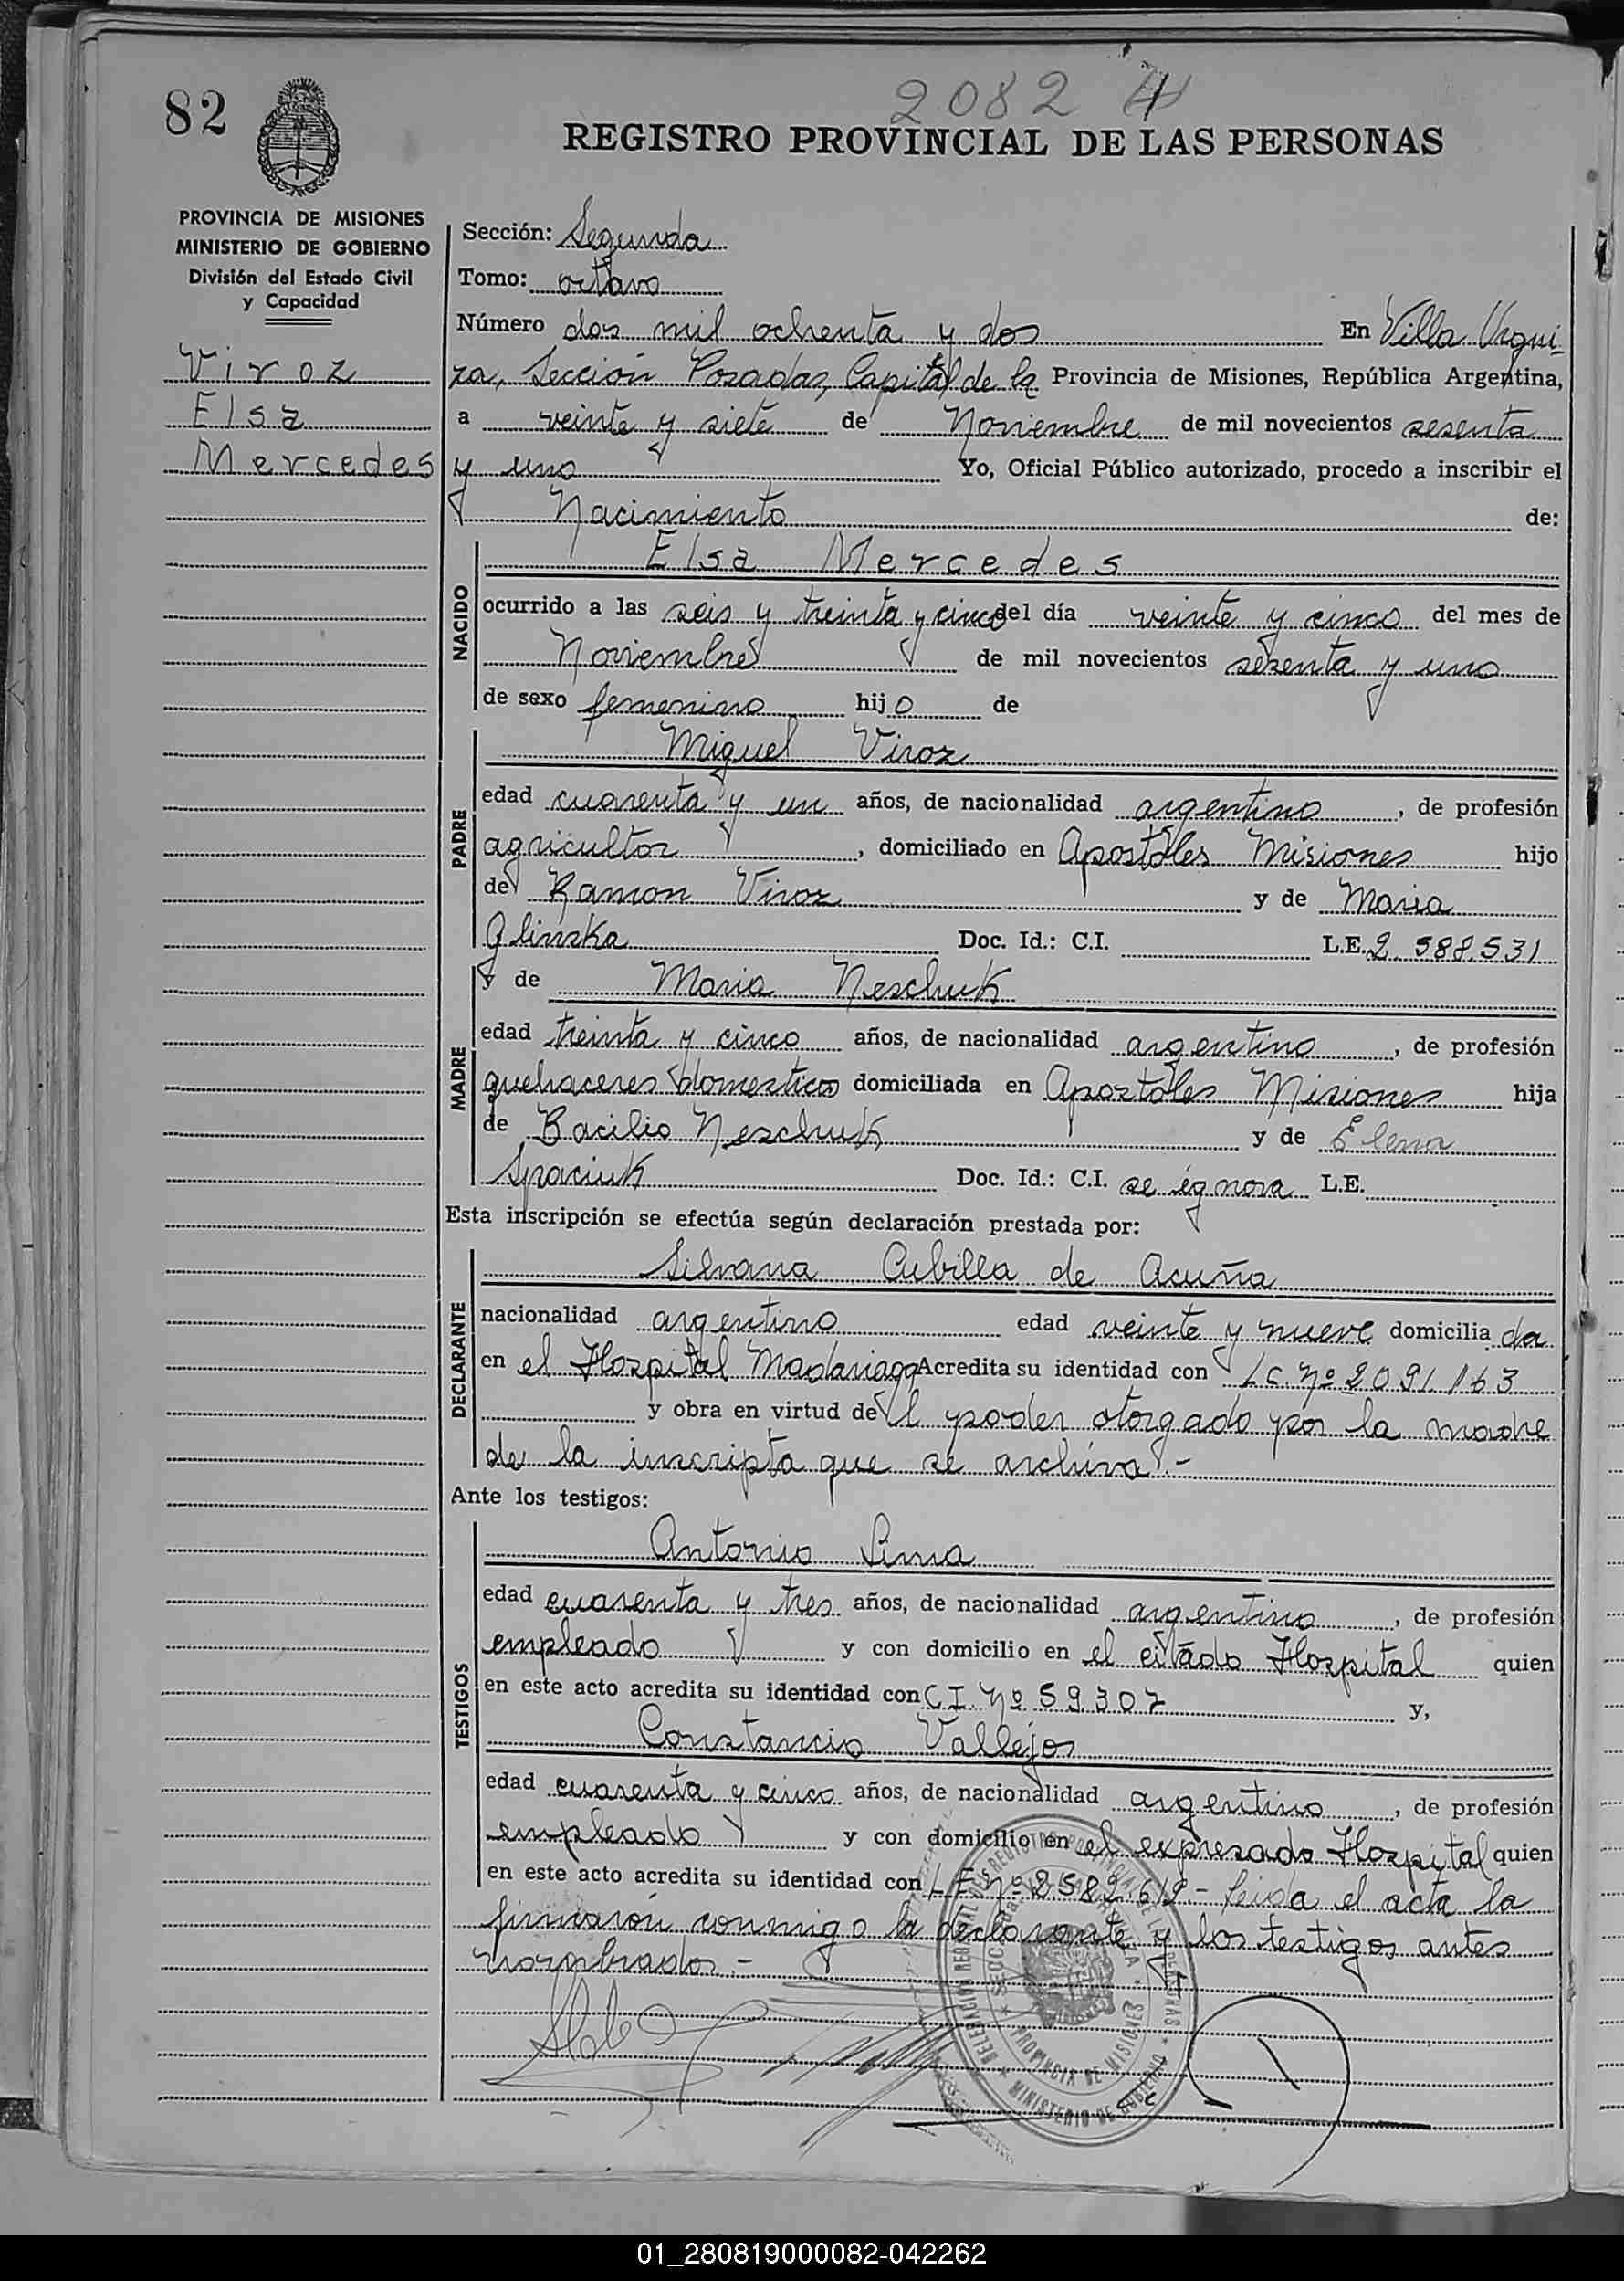 82
2082
REGISTRO PROVINCIAL DE LAS PERSONAS
PROVINCIA DE MISIONES
MINISTERIO DE GOBIERNO
División del Estado Civil
y Capacidad
Viroz
Elsa
Mercedes
Sección: Segunda
Tomo: octavo
Número dos mil ochenta y dos En Villa Urqui-
za, Sección Posadas, Capital de la Provincia de Misiones, República Argentina,
a veinte y siete de Noviembre de mil novecientos sesenta
y uno Yo, Oficial Público autorizado, procedo a inscribir el
Nacimiento de:
NACIDO
Elsa Mercedes
ocurrido a las seis y treinta y cinco del día veinte y cinco del mes de
Noviembre de mil novecientos sesenta y uno
de sexo femenino hijo de
PADRE
Miguel Viroz
edad cuarenta y un años, de nacionalidad argentino, de profesión
agricultor, domiciliado en Apostoles Misiones hijo
de Ramon Viroz y de Maria
Glinska Doc. Id.: C.I. L.E. 2.588.531
y de Maria Neschuk
MADRE
edad treinta y cinco años, de nacionalidad argentino, de profesión
quehaceres domesticos domiciliada en Apostoles Misiones hija
de Bacilio Neschuk y de Elena
Spaciuk Doc. Id.: C.I. se ignora L.E.
Esta inscripción se efectúa según declaración prestada por:
DECLARANTE
Silvana Cubilla de Acuña
nacionalidad argentino edad veinte y nueve domiciliada
en el Hospital Madariaga Acredita su identidad con LC. Nº 2091.163
y obra en virtud del poder otorgado por la madre
de la inscripta que se archiva.-
Ante los testigos:
TESTIGOS
Antonio Lima
edad cuarenta y tres años, de nacionalidad argentino, de profesión
empleado y con domicilio en el citado Hospital quien
en este acto acredita su identidad con C.I. Nº 59.307 y,
Constancio Vallejos
edad cuarenta y cinco años, de nacionalidad argentino, de profesión
empleado y con domicilio en el expresado Hospital quien
en este acto acredita su identidad con L.E. Nº 2582.619.- Leida el acta la
firmaron conmigo la declarante y los testigos antes
nombrados.-
PROVINCIA DE MISIONES
MINISTERIO DE GOBIERNO
01_280819000082-042262